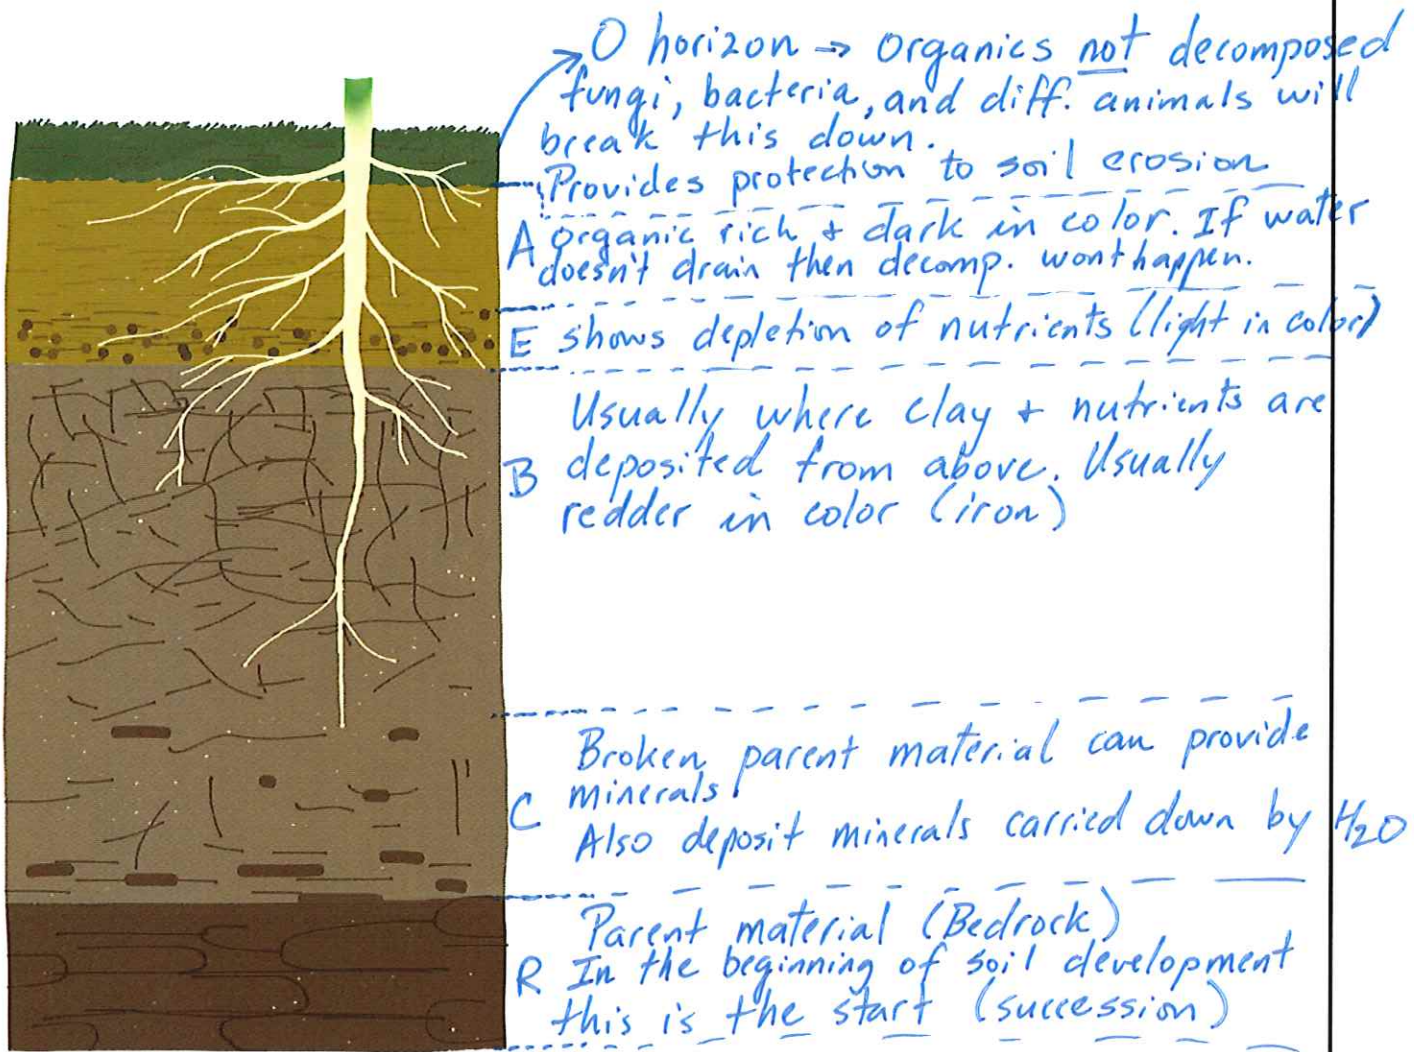 O horizon → Organics not decomposed
fungi, bacteria, and diff. animals will
break this down.
Provides protection to soil erosion
A organic rich + dark in color. If water
doesn't drain then decomp. wont happen.
E shows depletion of nutrients (light in color)
Usually where clay + nutrients are
B deposited from above. Usually
redder in color (iron)
Broken parent material can provide
C minerals.
Also deposit minerals carried down by H₂O
Parent material (Bedrock)
R In the beginning of soil development
this is the start (succession)